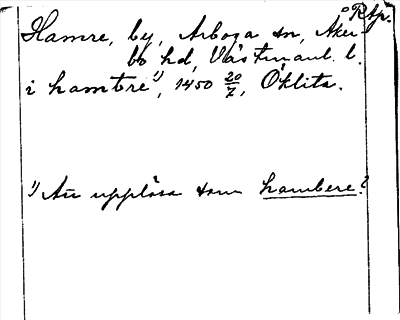 °Rtp.
Hamre, by, Arboga sn, Åker-
bo hd, Västmanl. l.
i hambre¹⁾, 1450 20/7, Öklita.
¹⁾ Att upplösa som hambere?